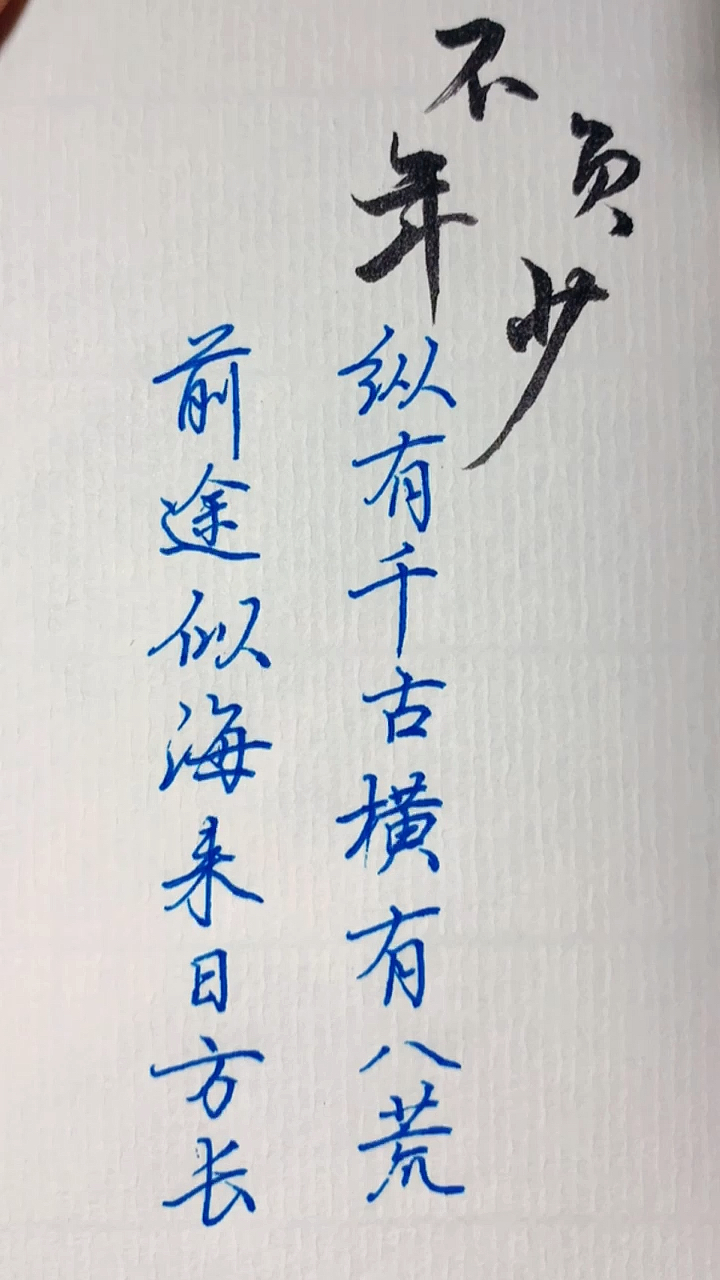 不负少年
纵有千古横有八荒
前途似海来日方长